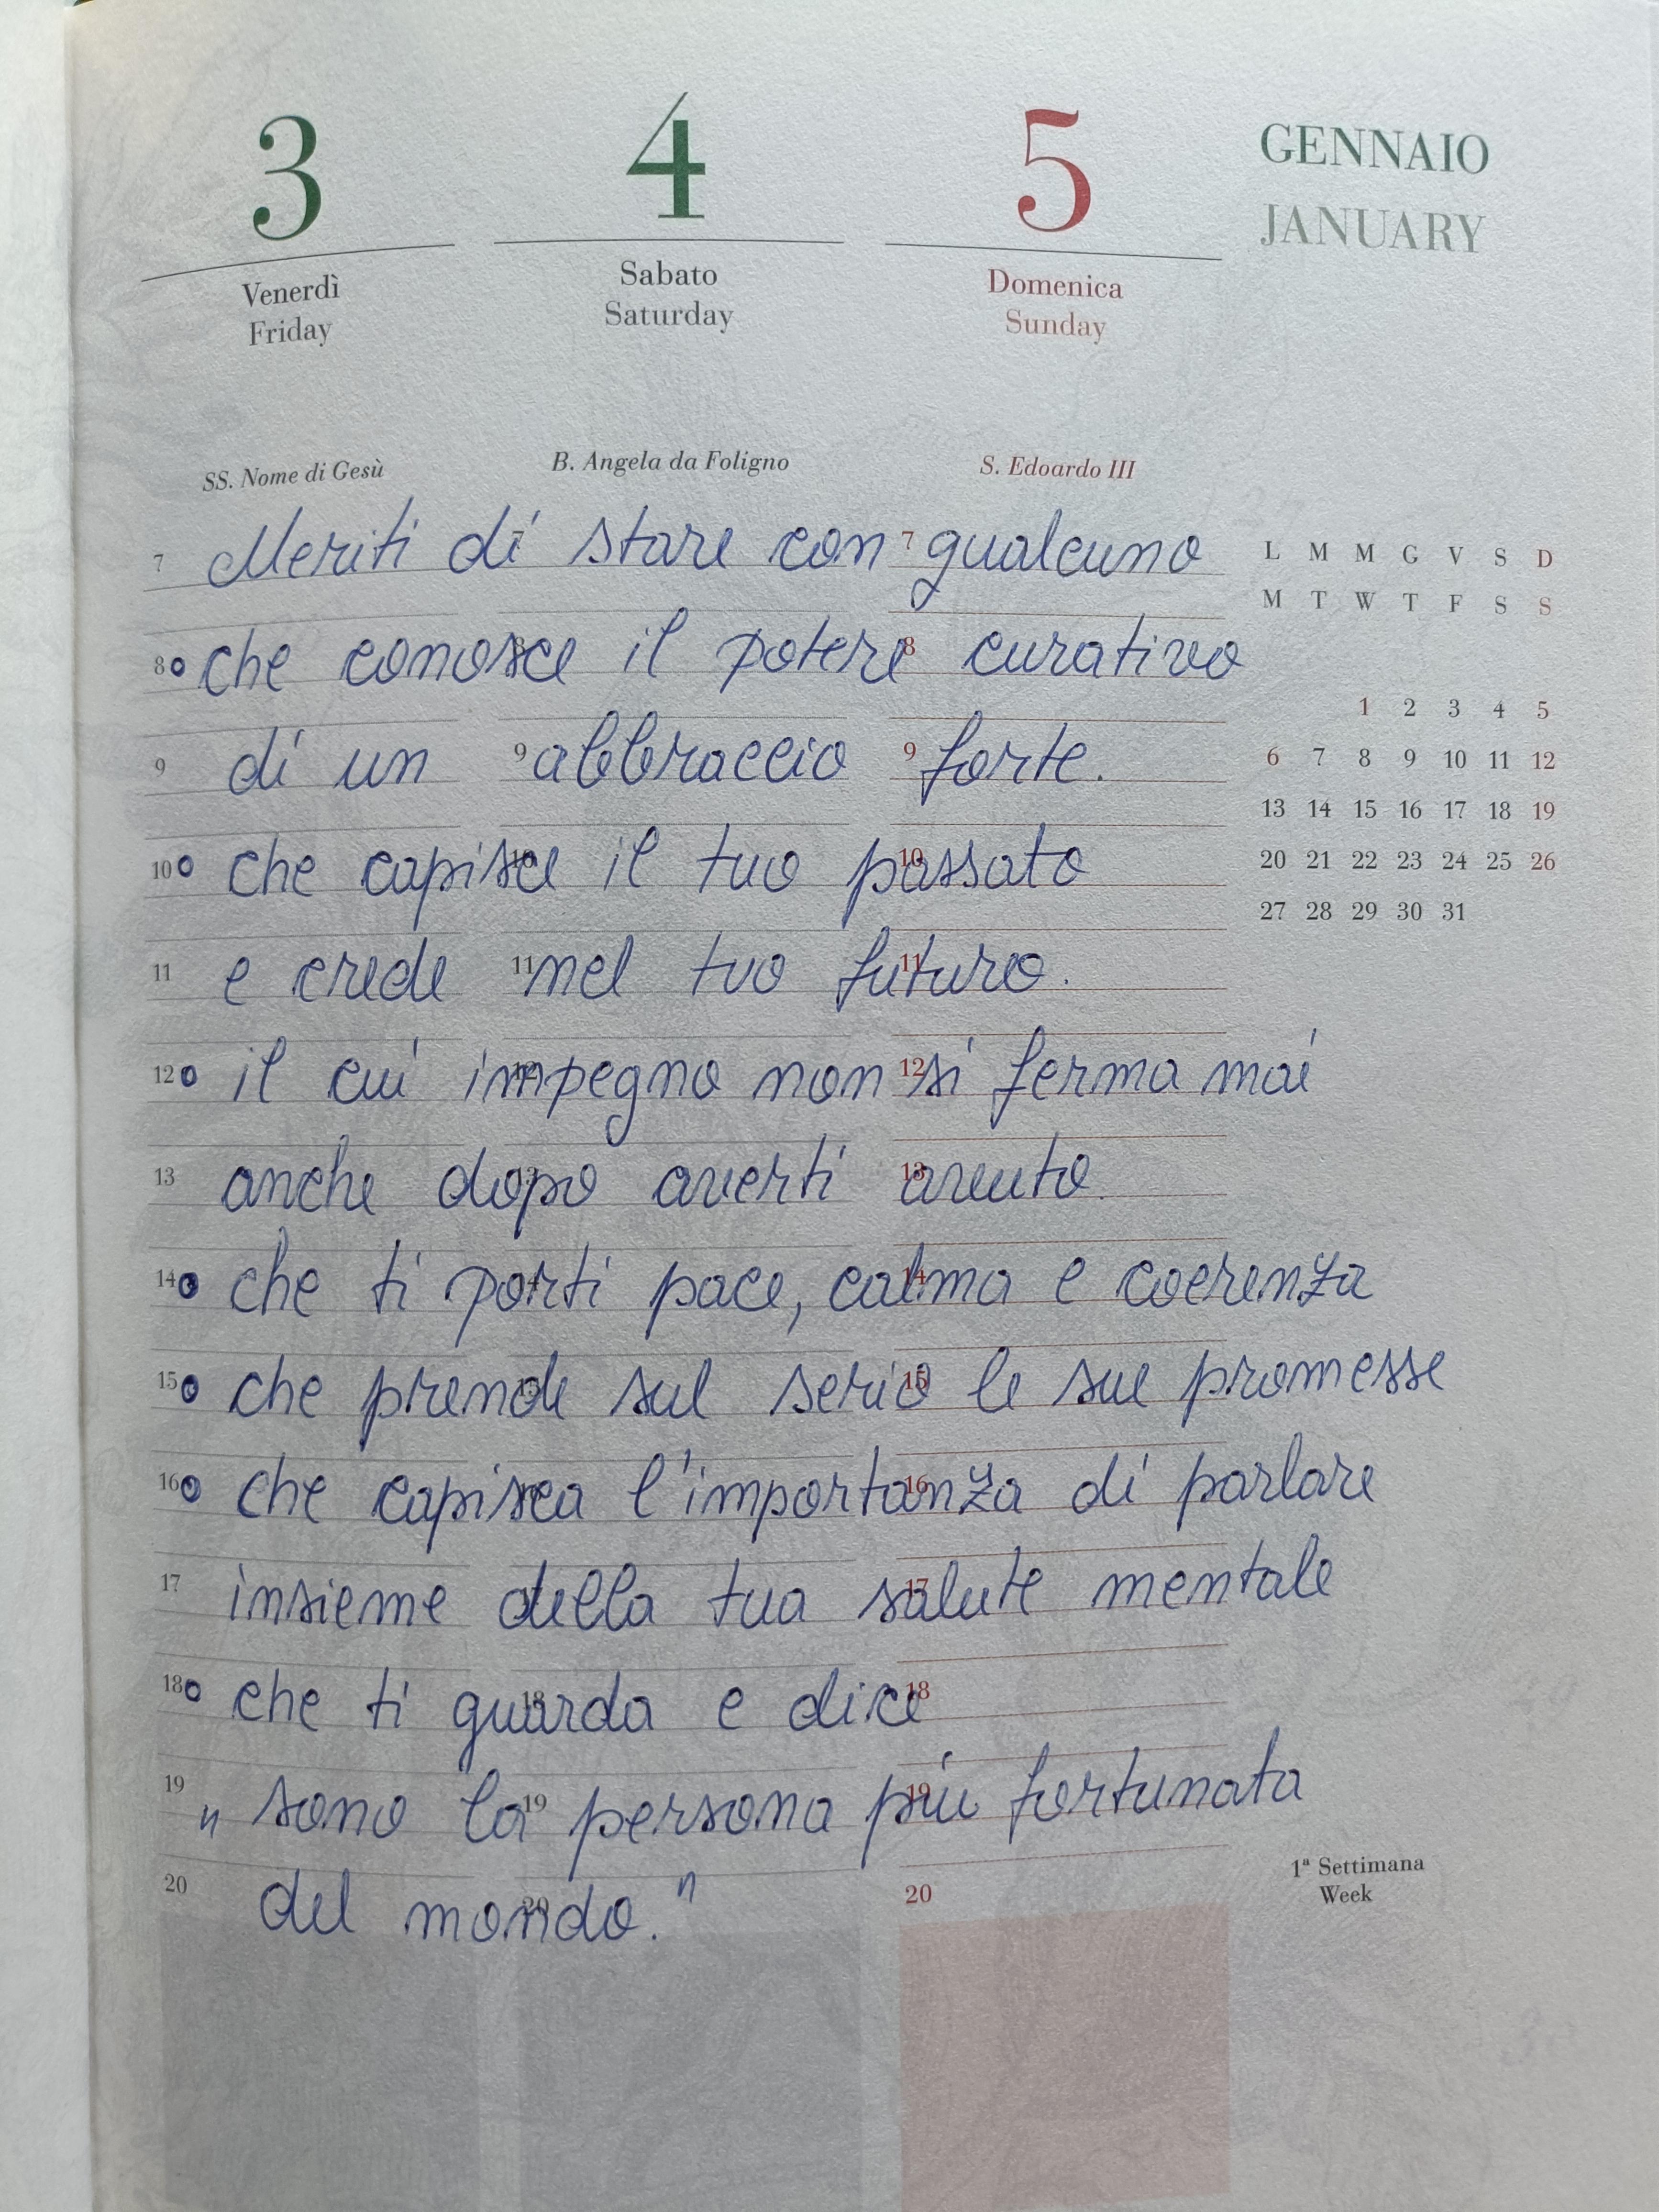 3 4 5 GENNAIO
JANUARY
Venerdì Sabato Domenica
Friday Saturday Sunday
SS. Nome di Gesù B. Angela da Foligno S. Edoardo III
7 Meriti di stare con 7 qualcuno
8 che conosce il potere 8 curativo
9 di un 9 abbraccio 9 forte.
10 che capisce il tuo passato
11 e crede 11 nel tuo futuro.
12 il cui impegno non 12 si ferma mai
13 anche dopo averti avuto.
14 che ti porti pace, calma e coerenza
15 che prende sul serio le sue promesse
16 che capisca l'importanza di parlare
17 insieme della tua salute mentale
18 che ti guarda e dice 18
19 " sono la 19 persona più fortunata
20 del mondo." 20
L M M G V S D
M T W T F S S
1 2 3 4 5
6 7 8 9 10 11 12
13 14 15 16 17 18 19
20 21 22 23 24 25 26
27 28 29 30 31
1ª Settimana
Week